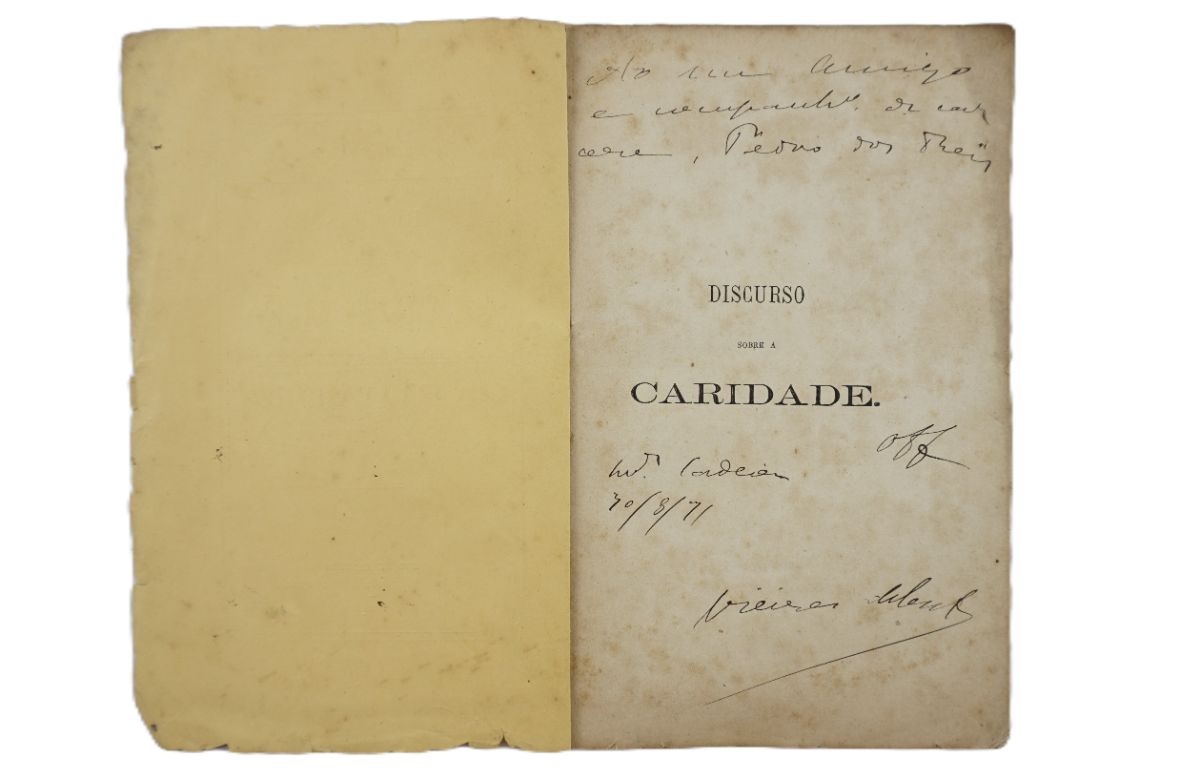 Ao meu Amigo
e companhr.º de car
cere, Pedro dos Reis
DISCURSO
SOBRE A
CARIDADE.
off
Cordeiro
30/8/71
Vieira